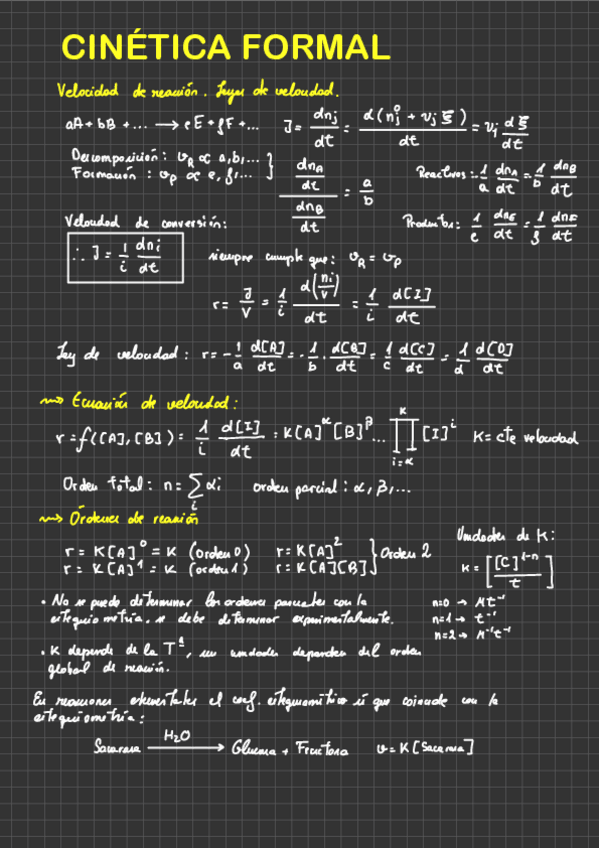 CINÉTICA FORMAL
Velocidad de reacción. Leyes de velocidad.
aA + bB + ... → eE + fF + ... J = dnj/dt = d(nj⁰ + νj ξ)/dt = νj dξ/dt
Descomposición: vR ∝ a, b, ... }
Formación: vP ∝ e, f, ... } (dnA/dt)/(dnB/dt) = a/b
Reactivos: 1/a dnA/dt = 1/b dnB/dt
Velocidad de conversión: Productos: 1/e dnE/dt = 1/f dnF/dt
∴ J = 1/i dni/dt siempre cumple que: vR = vP
r = J/V = 1/i d(ni/V)/dt = 1/i d[I]/dt
Ley de velocidad: r = -1/a d[A]/dt = -1/b · d[B]/dt = 1/c d[C]/dt = 1/d d[D]/dt
⇝ Ecuación de velocidad:
r = f([A],[B]) = 1/i d[I]/dt = K[A]^α [B]^β ... ∏_{i=α}^{K} [I]^i K = cte velocidad
Orden total: n = ∑_i αi orden parcial: α, β, ...
⇝ Órdenes de reacción
r = K[A]⁰ = K (orden 0) r = K[A]² }
r = K[A]¹ = K (orden 1) r = K[A][B] } Orden 2
Unidades de K:
K = [[C]^{1-n}/t]
• No se puede determinar los ordenes parciales con la
estequiometría, se debe determinar experimentalmente.
n=0 → M t⁻¹
n=1 → t⁻¹
n=2 → M⁻¹ t⁻¹
• K depende de la Tª, sus unidades dependen del orden
global de reacción.
En reacciones elementales el coef. estequiométrico sí que coincide con la
estequiometría:
Sacarosa —H₂O→ Glucosa + Fructosa v = K[Sacarosa]